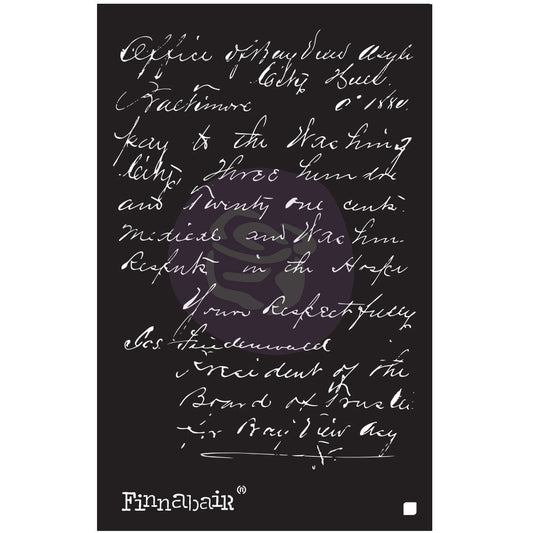 Office of Bay View Asyl
City Hall
Baltimore 1880.
pay to the Washing
City, Three hundre
and Twenty one cents.
Medical and Washin
in the Hospi
Yours Respectfully
Jos. Friedenwald
President of the
Board of Truste
for Bay View Asy
Finnabair